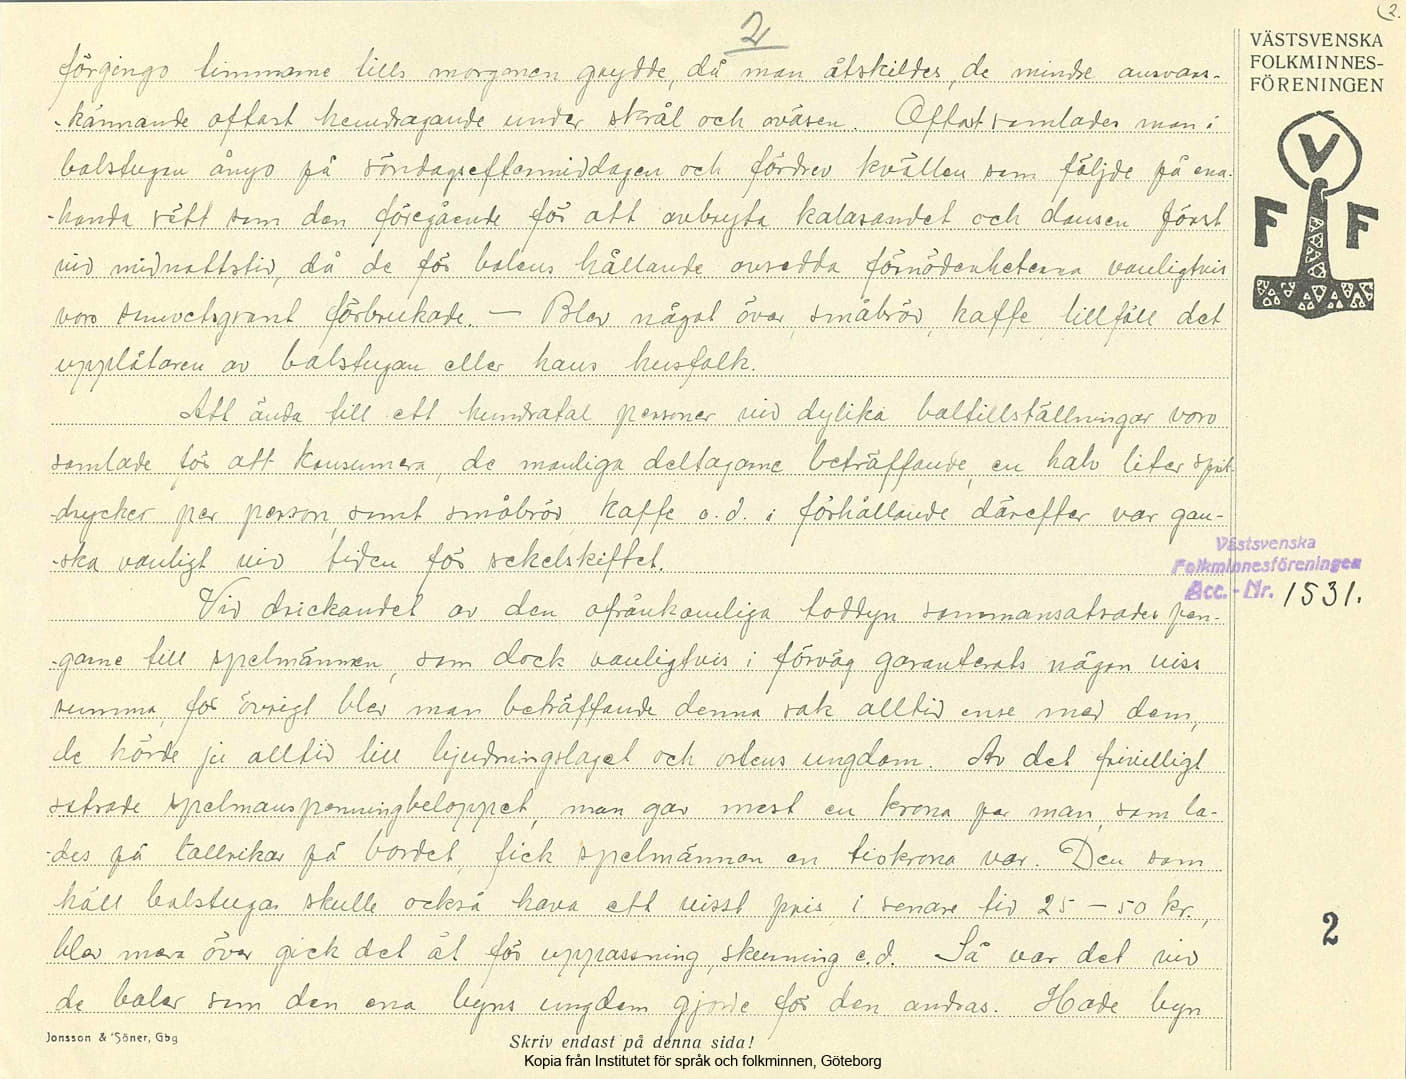 2
(2.
VÄSTSVENSKA
FOLKMINNES-
FÖRENINGEN
V
F F
förgingo timmarne tills morgonen grydde, då man åtskildes, de mindre ansvars-
-kännande oftast hemdragande under skrål och oväsen. Oftast samlades man i
balstugan ånyo på söndagseftermiddagen och fördrev kvällen som följde på ena-
-handa sätt som den föregående för att avbryta kalasandet och dansen först
vid midnattstid, då de för balens hållande avsedda förnödenheterna vanligtvis
voro smevetsgrant förbrukade. — Blev något över, småbröd, kaffe, tillföll det
upplåtaren av balstugan eller hans husfolk.
Att ända till ett hundratal personer vid dylika baltillställningar voro
samlade för att konsumera, de manliga deltagarne beträffande, en halv liter sprit-
-drycker per person, samt småbröd, kaffe o.d. i förhållande därefter var gan-
-ska vanligt vid tiden för sekelskiftet.
Västsvenska
Folkminnesföreningen
Acc.-Nr. 1531.
Vid drickandet av den ofrånkomliga toddyn sammansatsades pen-
-garne till spelmännen, som dock vanligtvis i förväg garanterats någon viss
summa, för övrigt blev man beträffande denna sak alltid ense med dem,
de hörde ju alltid till bjudningslaget och ortens ungdom. Av det frivilligt
satsade spelmanspenningbeloppet, man gav mest en krona per man, som la-
-des på tallrikar på bordet, fick spelmännen en tiokrona var. Den som
höll balstugan skulle också hava ett visst pris, i senare tid 25 — 50 kr.,
blev mera över gick det åt för uppassning, skurning e.d. Så var det vid
de baler som den ena byns ungdom gjorde för den andras. Hade byn
2
Jonsson & Söner, Gbg
Skriv endast på denna sida!
Kopia från Institutet för språk och folkminnen, Göteborg